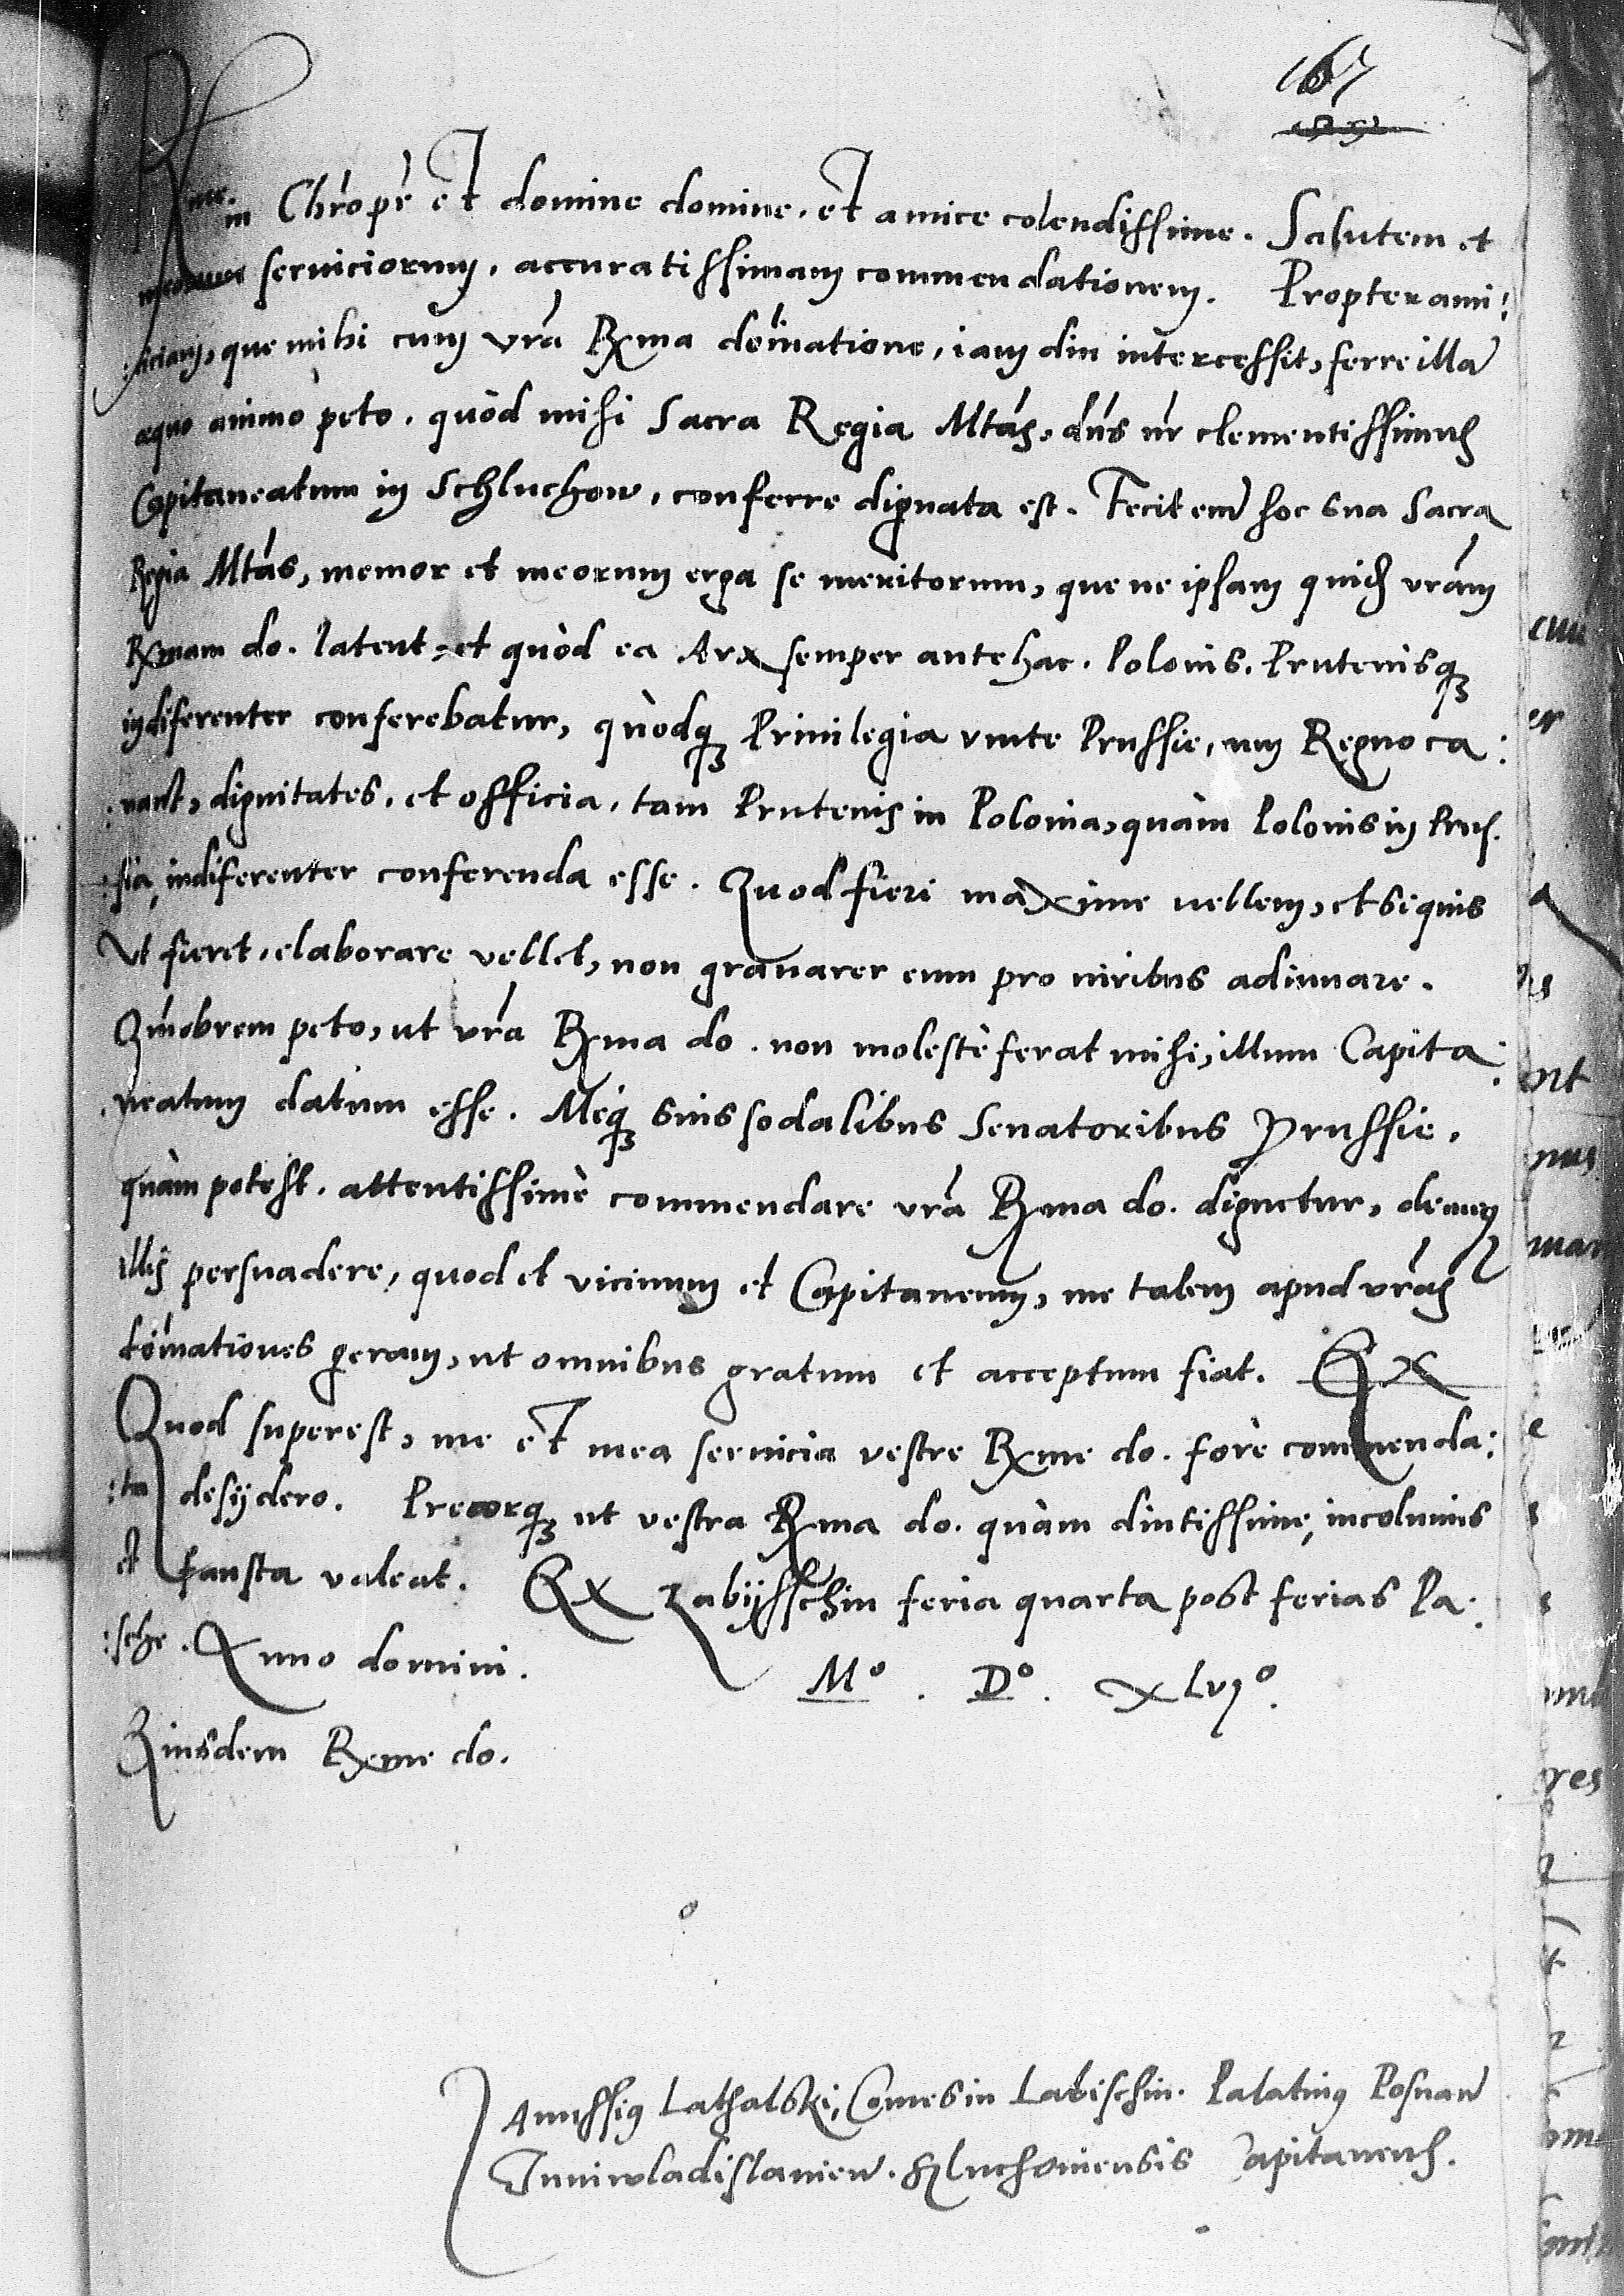 167
Rme. in Chro prē et domine domine. et amice colendissime. Salutem et
meorum seruiciorum, accuratissimam commendationem. Propter ami:
:ticiam, que mihi cum vrā Rma dominatione, iam diu intercessit, ferre illa
æquo animo peto. quòd mihi Sacra Regia Mtas, dns nr clementissimus
Capitaneatum in Schluchow, conferre dignata est. Fecit em̄ hoc sua Sacra
Regia Mtas, memor et meorum erga se meritorum, que ne ipsam quid vram
Rmam do. latent, et quòd ea Arx semper antehac. Polonis. Prutenisq
indiferenter conferebatur, quòdq Priuilegia vnite Prussie, cum Regno ca:
:uant, dignitates, et officia, tam Prutenis in Polonia, quàm Polonis in Prus.
:sia, indiferenter conferenda esse. Quod fieri maxime uellem, et si quis
Vt fieret, elaborare vellet, non grauarer eum pro uiribus adiuuare.
Qmobrem peto, ut vrā Rma do. non molestè ferat mihi, illum Capita:
:neatum datum esse. Meq suis sodalibus Senatoribus Prussie.
quàm potest. attentissimè commendare vrā Rma do. dignetur, demum
illis persuadere, quod et vicinum et Capitaneum, me talem apud vras
dominationes geram, ut omnibus gratum et acceptum fiat. Ex
Quod superest, me et mea seruicia vestre Rme do. forè commenda:
:ta desydero. Precorq ut vestra Rma do. quàm diutissime, incolumis
et fausta valeat. Ex Labyschin feria quarta post ferias Pa:
:sche. Anno domini. Mo. Do. xlvjo.
Eiusdem Rme do.
Anussius Lathalski, Comes in Labischin. Palatinus Posnan
Iuniwladislauien. Sluchouiensis Capitaneus.